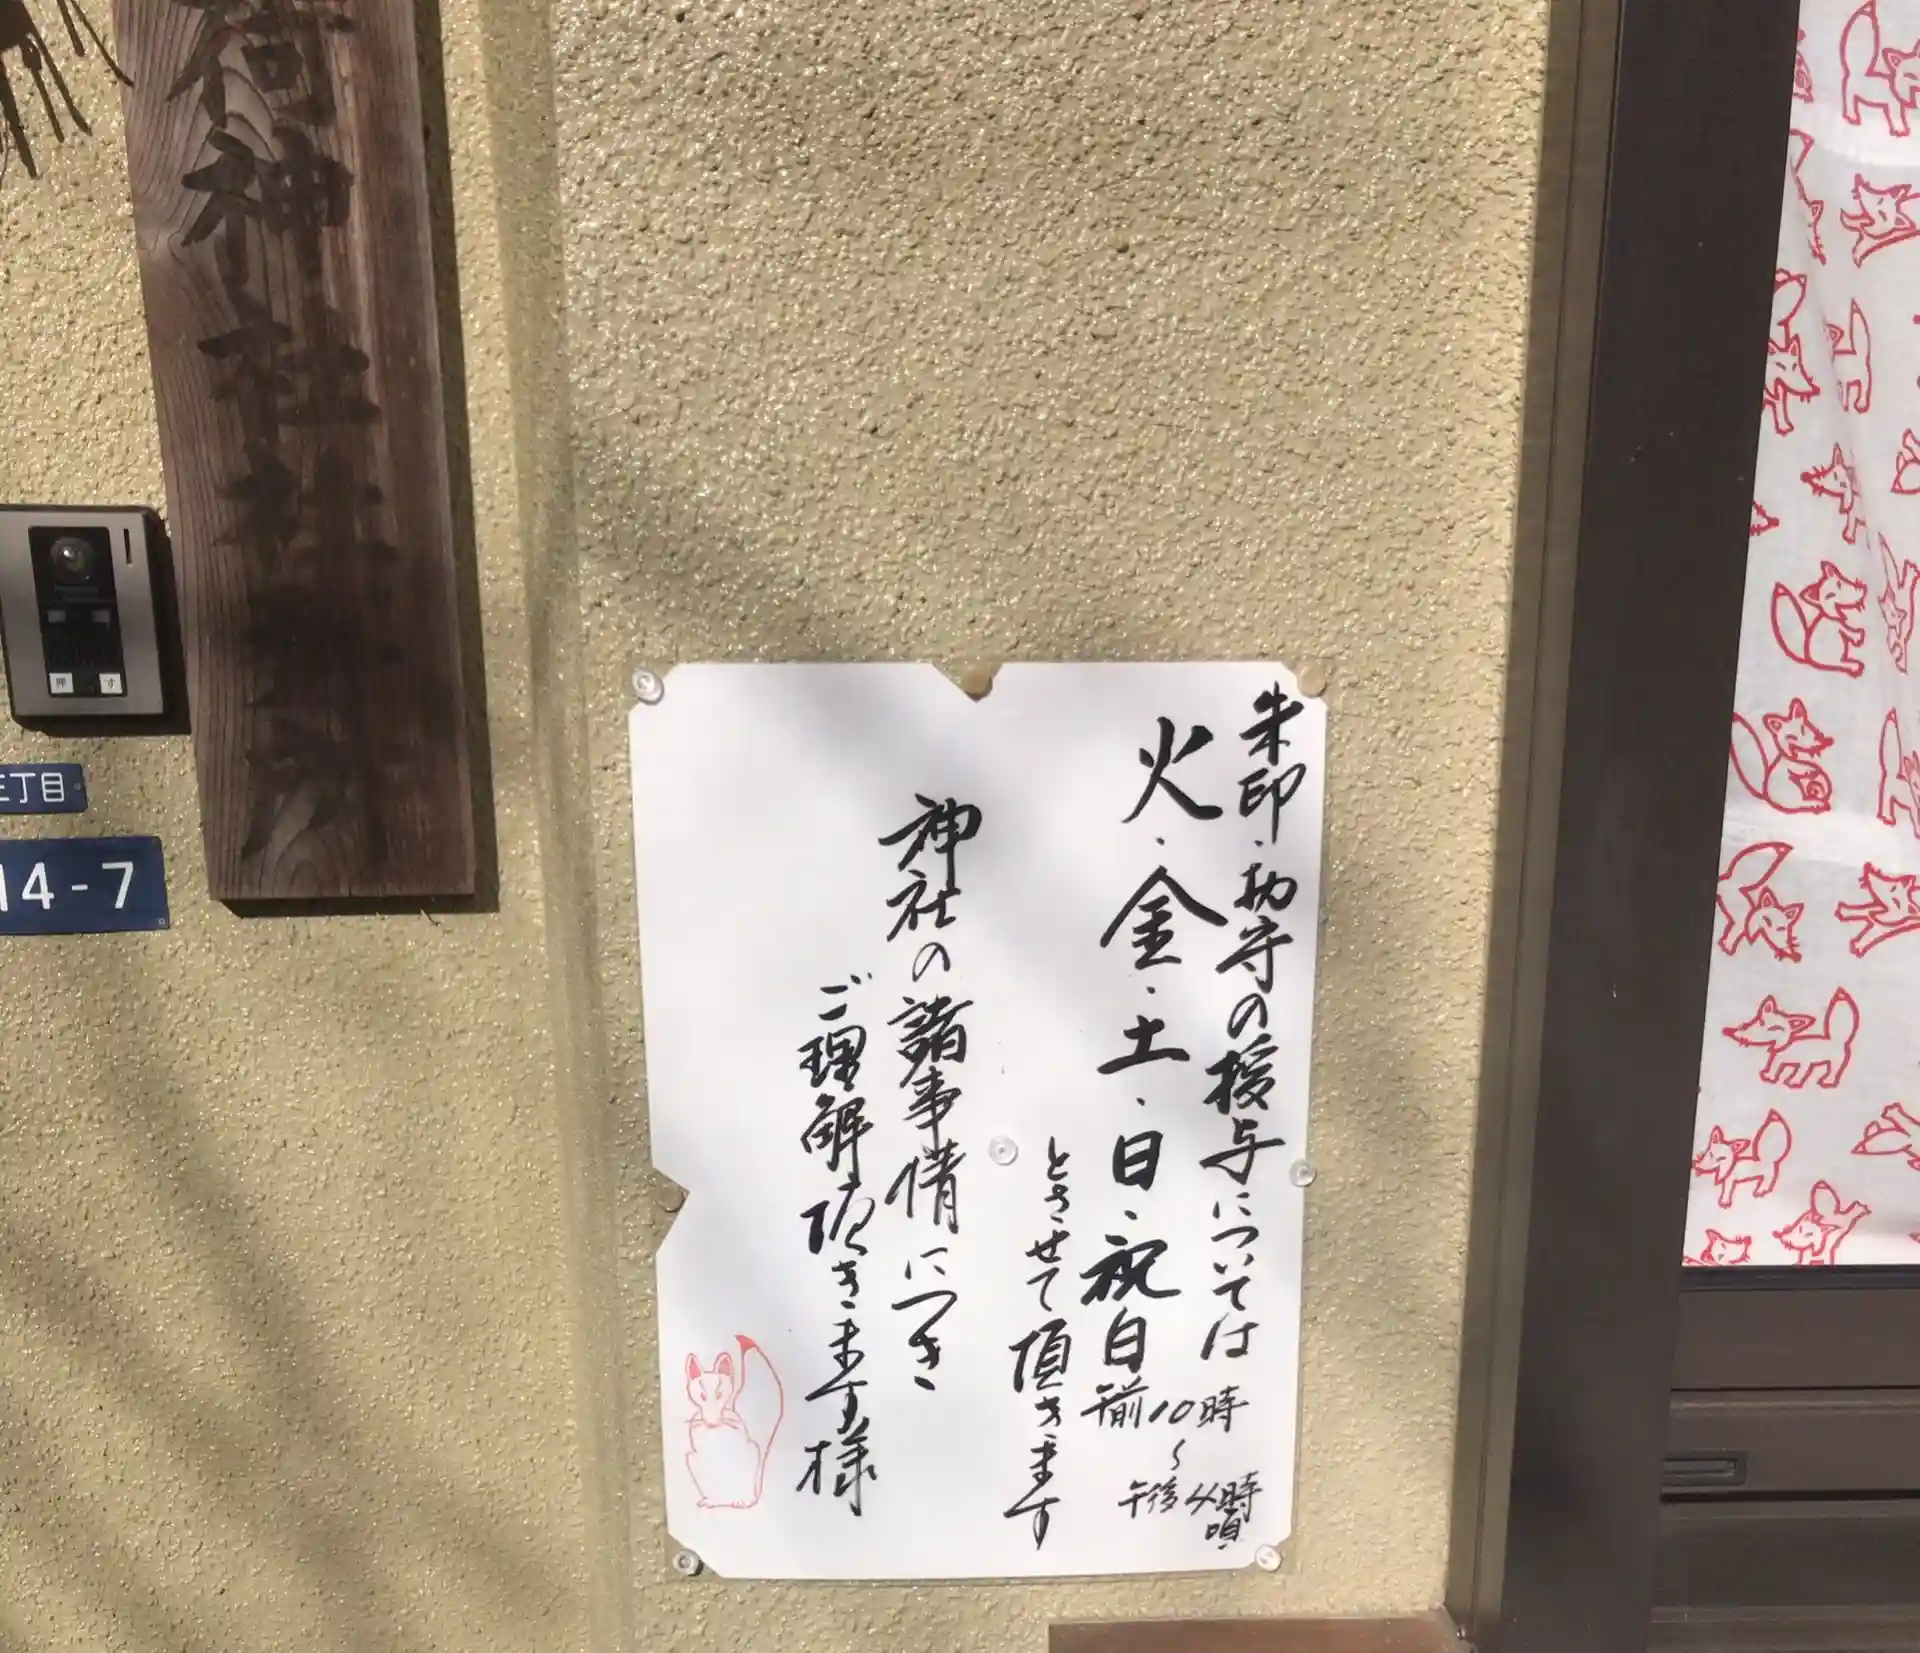 荷神社社務所
押 す
三丁目
14-7
朱印・お守の授与については
火・金・土・日・祝日
午前10時
〜
午後4時
頃
とさせて頂きます
神社の諸事情につき
ご理解頂きます様